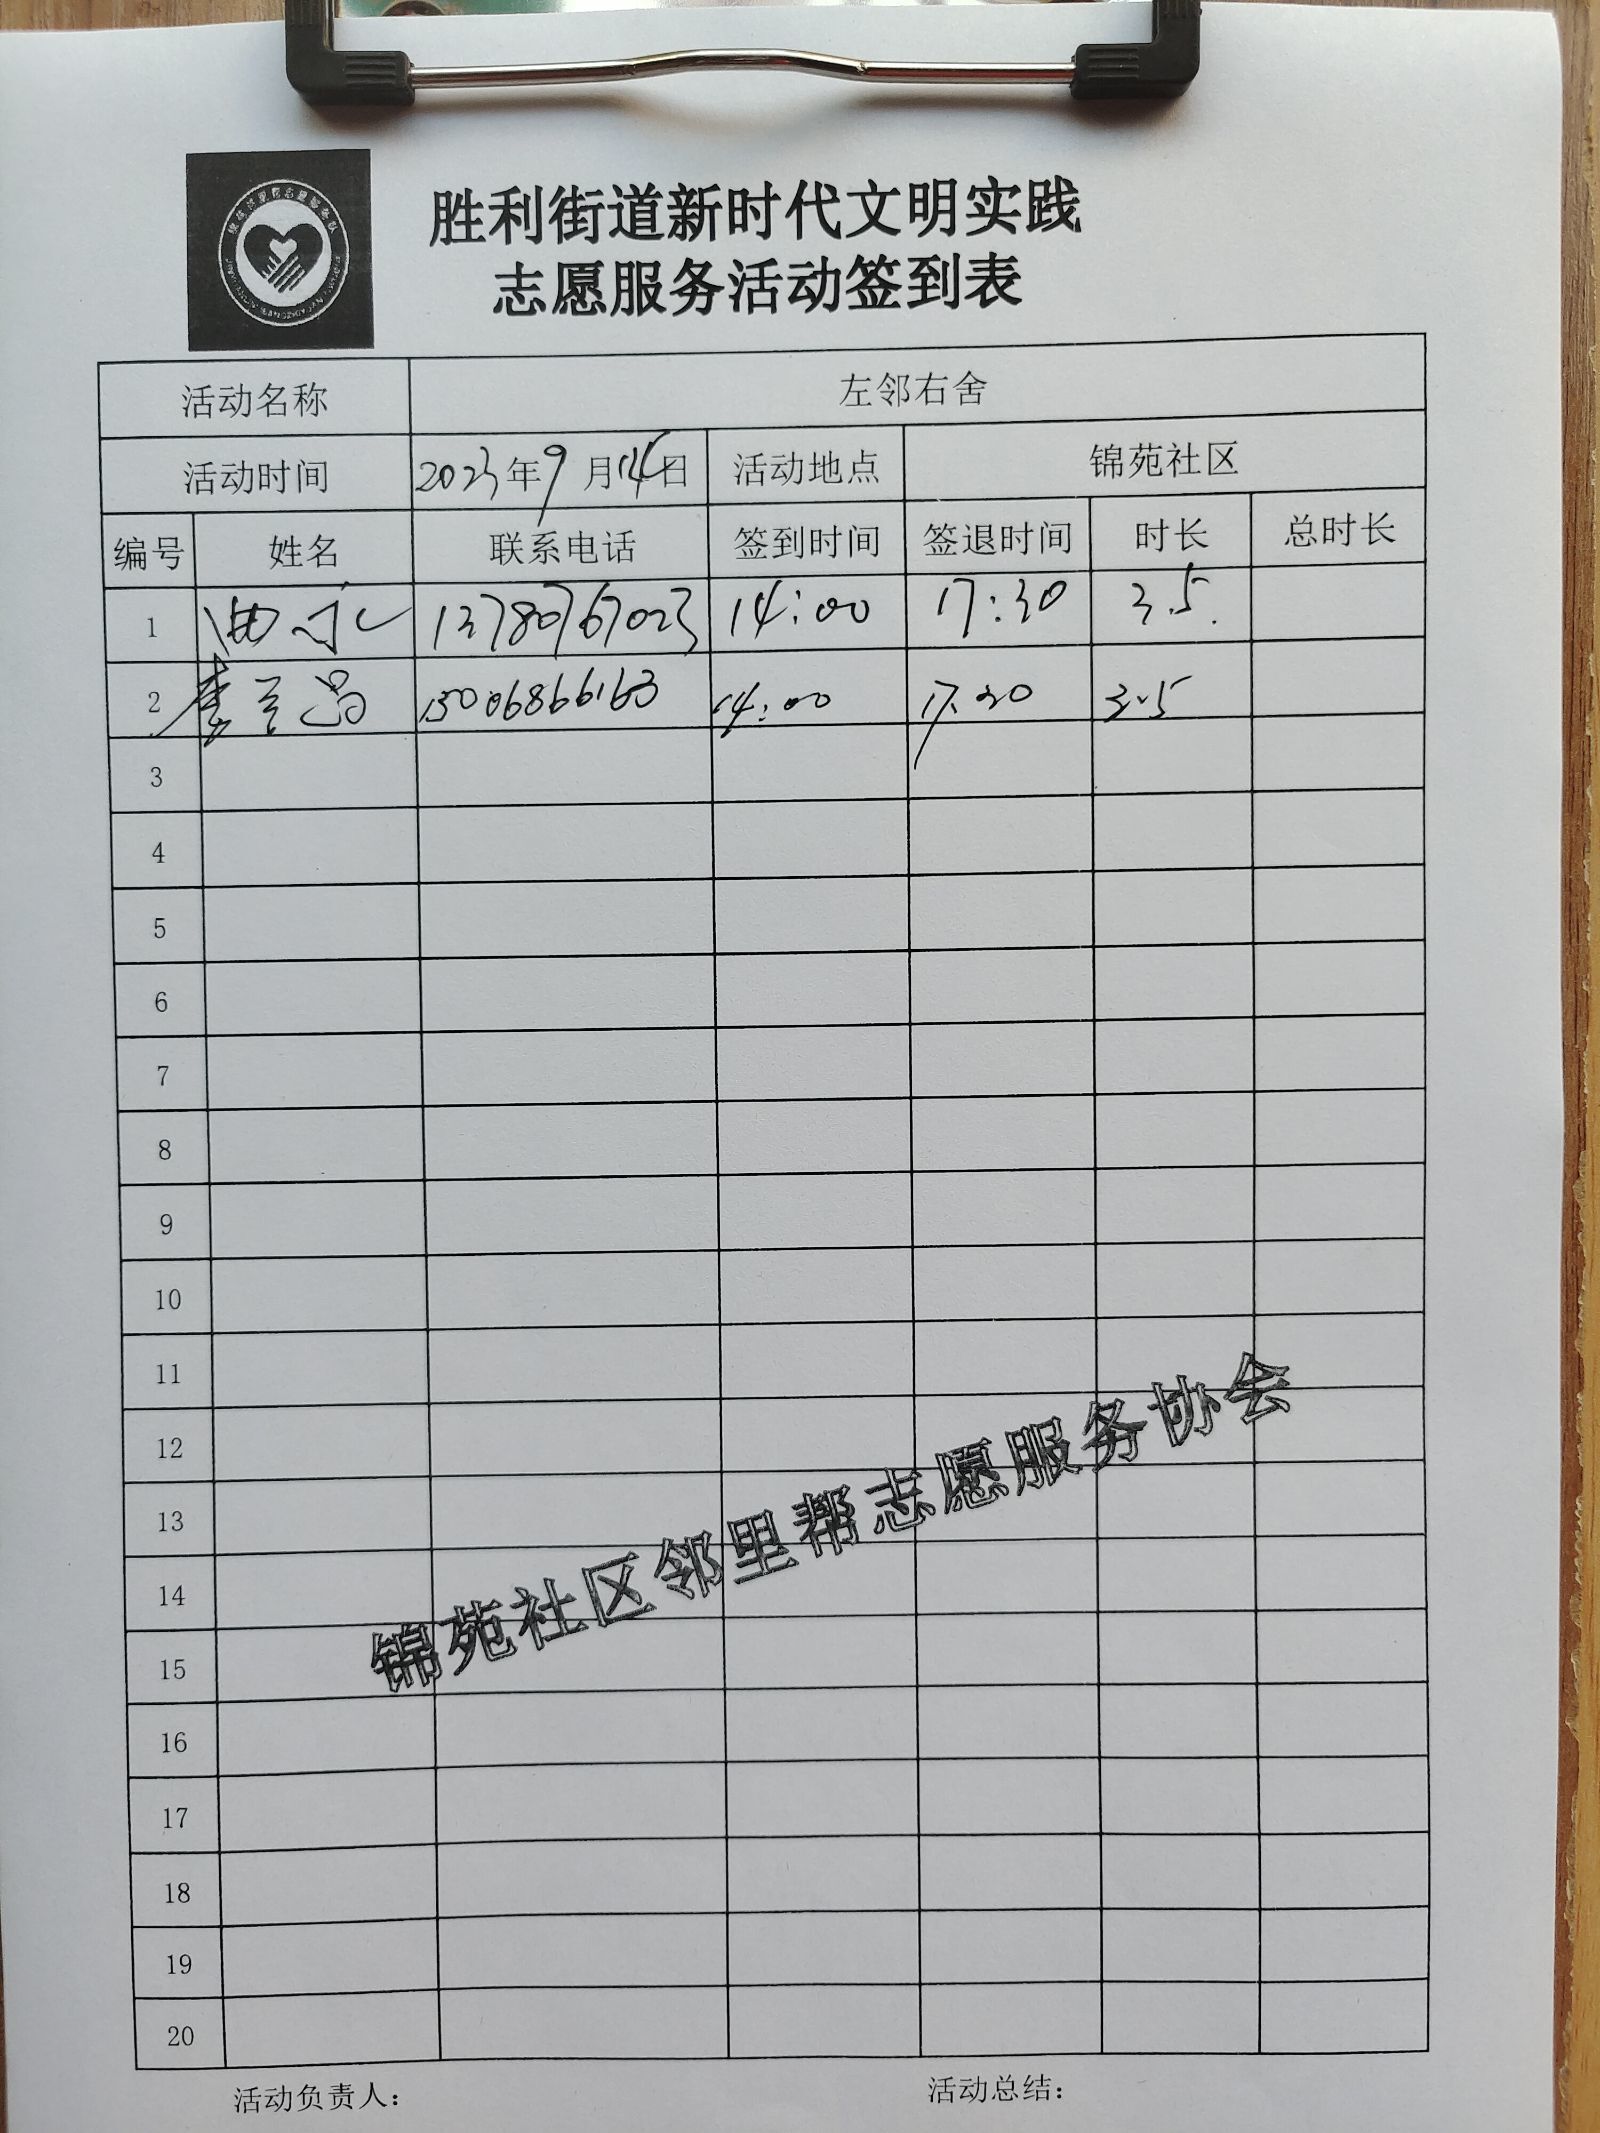 胜利街道新时代文明实践
志愿服务活动签到表
活动名称 左邻右舍
活动时间 2023年9月14日 活动地点 锦苑社区
编号 姓名 联系电话 签到时间 签退时间 时长 总时长
1 13780767023 14:00 17:30 3.5
2 14:00 17:30 3.5
3
4
5
6
7
8
9
10
11
12
13
14
15
16
17
18
19
20
锦苑社区邻里帮志愿服务协会
活动负责人: 活动总结: